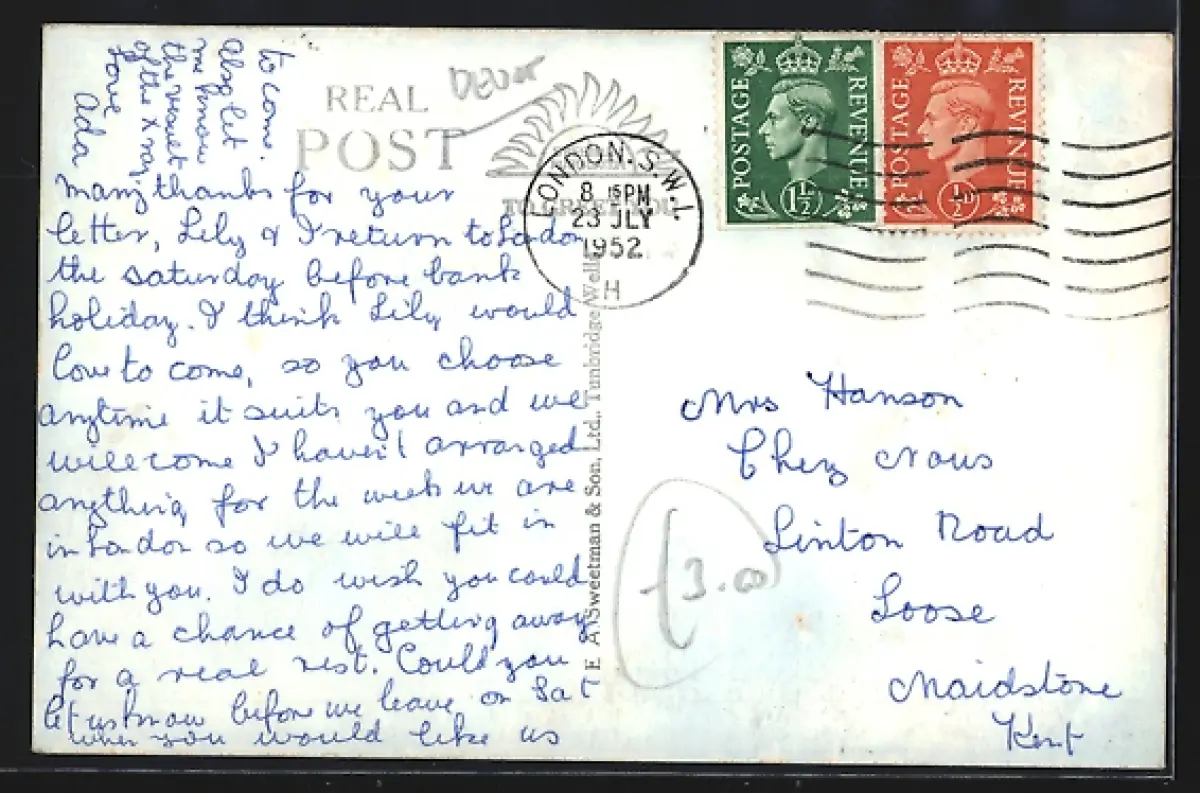 many thanks for your
letter, Lily & I return to London
the saturday before bank
holiday. I think Lily would
love to come, so you choose
anytime it suits you and we
will come I haven't arranged
anything for the week we are
in London so we will fit in
with you. I do wish you could
have a chance of getting away
for a real rest. Could you
let us know before we leave on Sat
when you would like us
to come.
Also let
me know
the result
of the X ray
Love
Ada
REAL
POST
Devon
TO GREET YOU
A. Sweetman & Son, Ltd., Tunbridge Wells
LONDON. S.W.1.
8 15 PM
23 JLY
1952
H
POSTAGE REVENUE
1½D
POSTAGE REVENUE
½D
Mrs Hanson
Chez Nous
Linton Road
Loose
Maidstone
Kent
£3.00